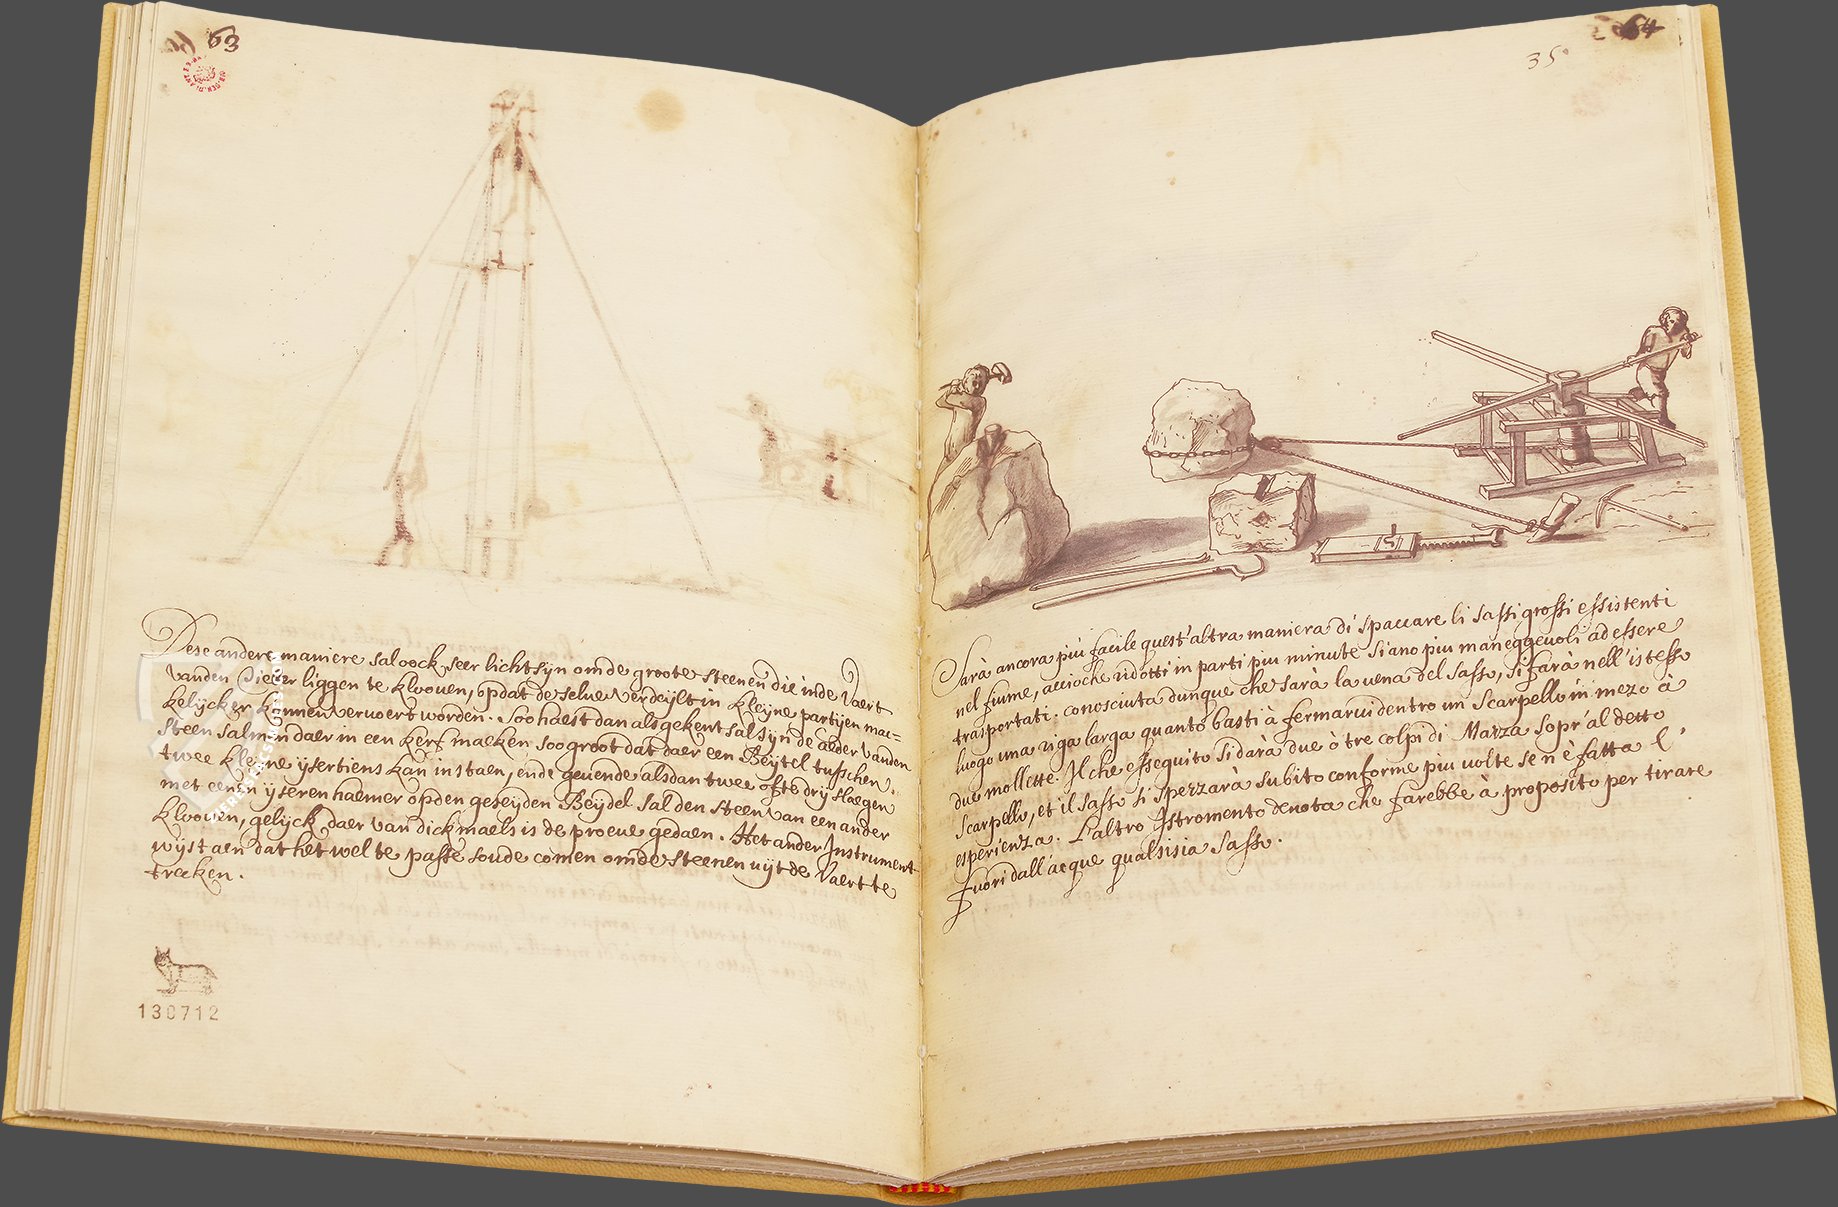 63
Dese andere maniere sal oock seer licht sijn om de groote steenen die inde Vaert
vanden Tieber liggen te klooven, opdat de selve verdeijlt in kleijne partijen mac-
kelijcker konnen vervoert worden. Soo haest dan als gekent sal sijn de ader vanden
steen salmen daer in een kerf maeken soo groot dat daer een Beytel tusschen
twee kleijne ysertiens kan in staen, ende gevende alsdan twee ofte drij slaegen
met eenen ijseren haemer op den geseijden Beijdel sal den steen van een ander
klooven, gelijck daer van dickmaels is de proeve gedaen. Het ander Instrument
wijst aen dat het wel te passe soude comen om de steenen uijt de Vaert te
trecken.
130712
64
35
Sarà ancora più facile quest'altra maniera di spaccare li sassi grossi essistenti
nel fiume, acciochè ridotti in parti piu minute siano piu maneggevoli ad essere
trasportati. conosciuta dunque che sarà la vena del sasso, si farà nell'istesso
luogo una riga larga quanto basti à fermarvi dentro un Scarpello in mezo à
due mollette. Il che esseguito si darà due ò tre colpi di Mazza sopr'al detto
scarpello, et il sasso si spezzarà subito conforme piu volte se n'è fatta l'
esperienza. L'altro Istromento denota che farebbe à proposito per tirare
fuori dall'acque qualsisia sasso.